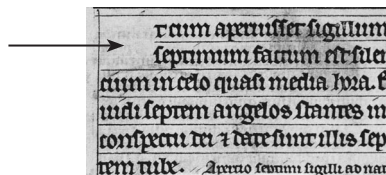 t cum aperuisset sigillum
septimum factum est silen
cium in celo quasi media hora. E
uidi septem angelos stantes in
conspectu dei ⁊ date sunt illis sep
tem tube. Apertio septimi sigilli ad nat